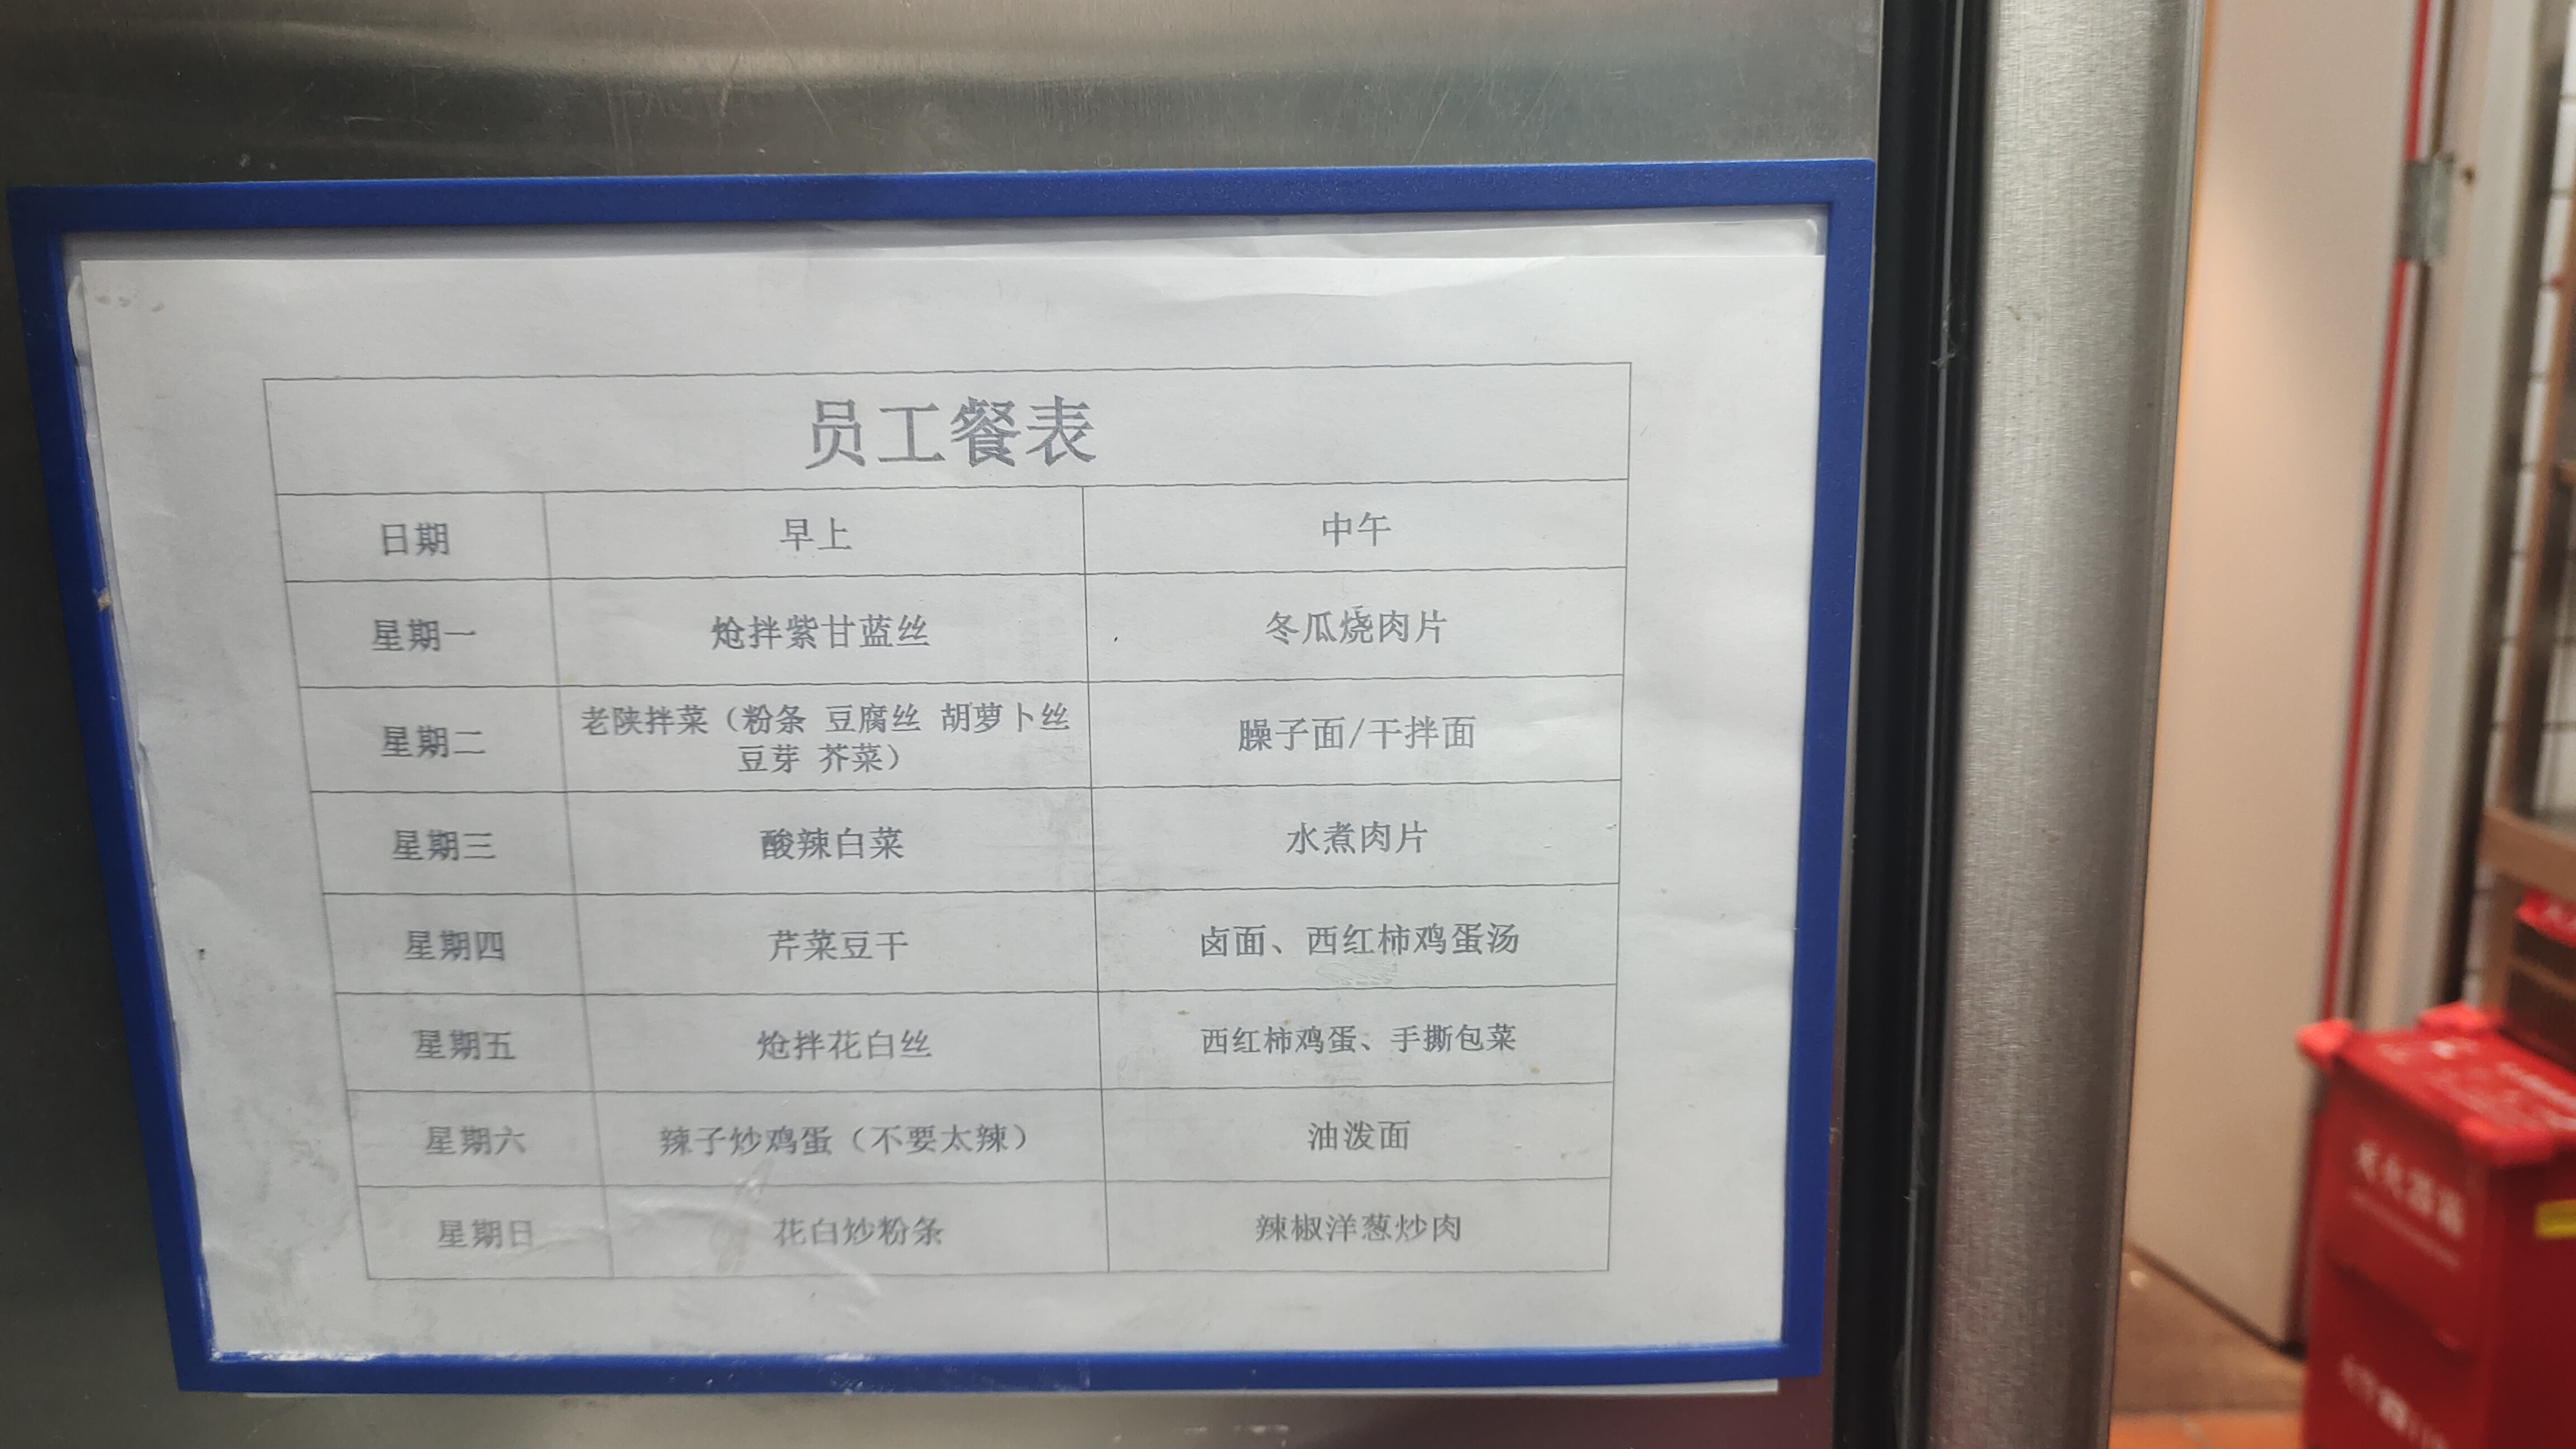 员工餐表
日期 早上 中午
星期一 炝拌紫甘蓝丝 冬瓜烧肉片
星期二 老陕拌菜（粉条 豆腐丝 胡萝卜丝
豆芽 芥菜） 臊子面/干拌面
星期三 酸辣白菜 水煮肉片
星期四 芹菜豆干 卤面、西红柿鸡蛋汤
星期五 炝拌花白丝 西红柿鸡蛋、手撕包菜
星期六 辣子炒鸡蛋（不要太辣） 油泼面
星期日 花白炒粉条 辣椒洋葱炒肉